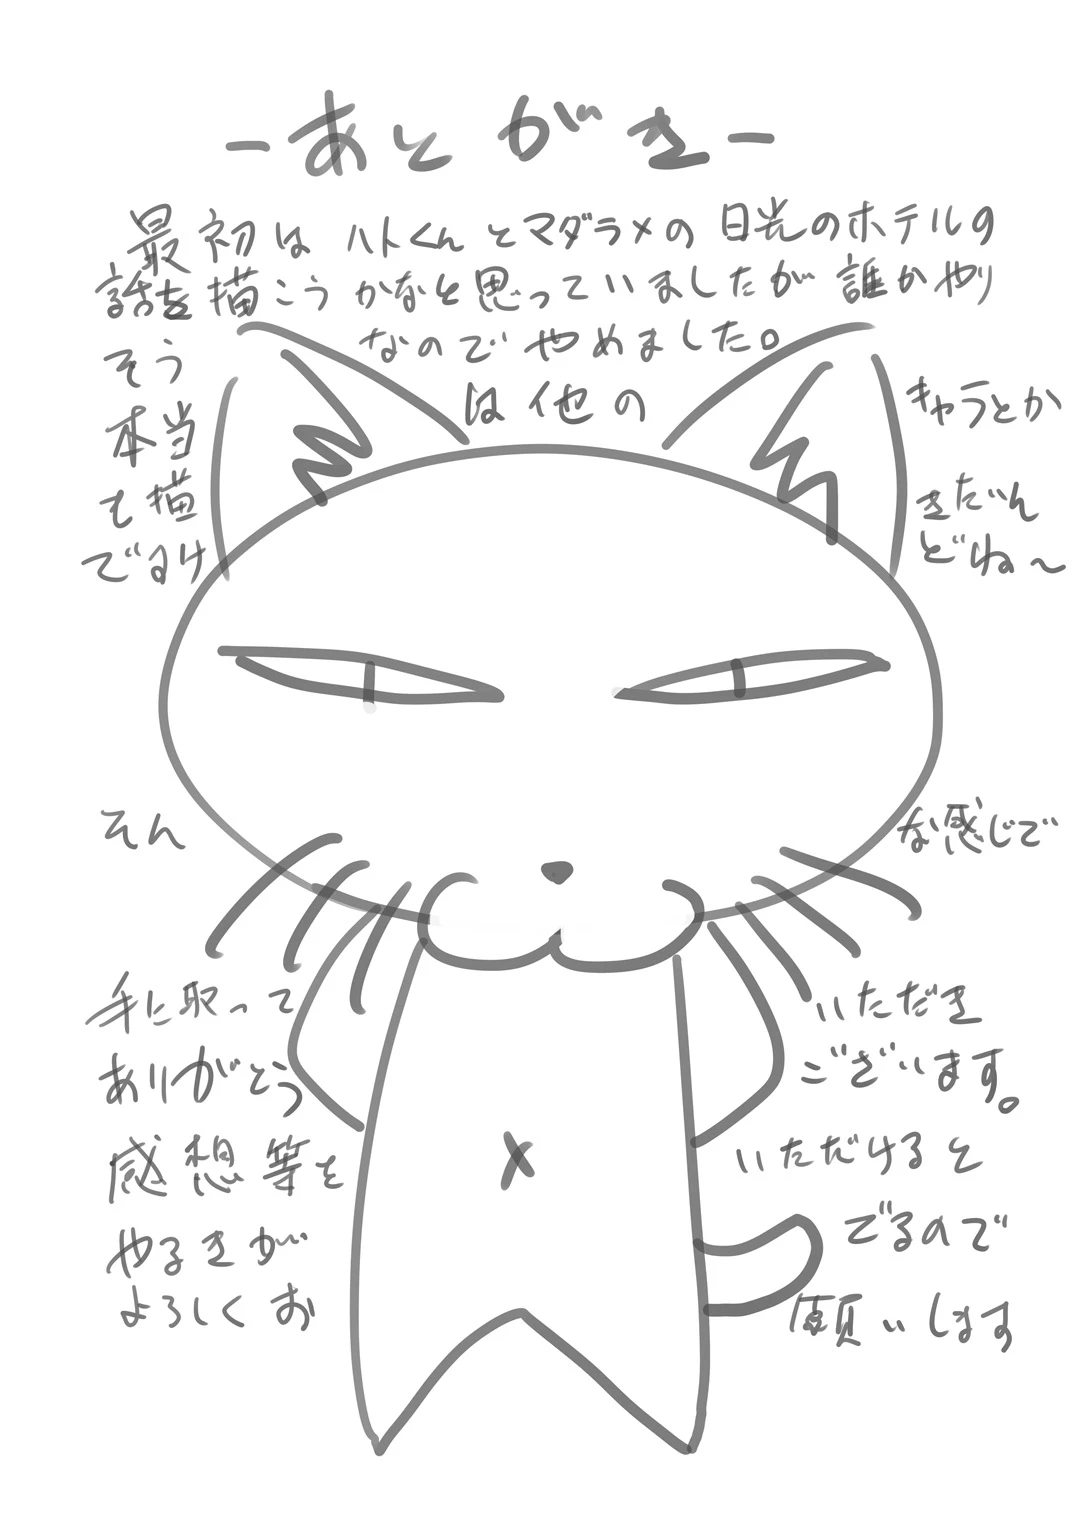 -あとがき-
最初はハトくんとマダラメの日光のホテルの
話を描こうかなと思っていましたが誰かやり
そうなのでやめました。
本当は他のキャラとか
も描きたいん
でるけどね〜
そんな感じで
手に取っていただき
ありがとうございます。
感想等をいただけると
やるきがでるので
よろしくお願いします